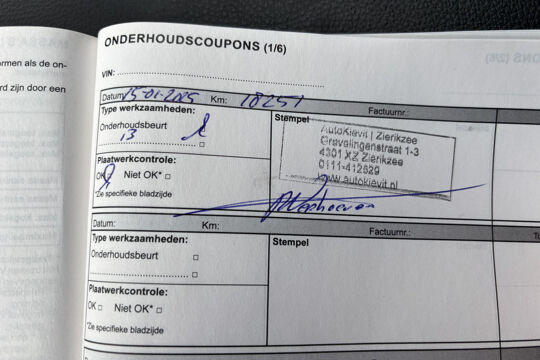 ormen als de on-
rd zijn door een
ONDERHOUDSCOUPONS (1/6)
VIN:
Datum: 15-01-2025 Km: 18251 Factuurnr.:
Type werkzaamheden:
Stempel
Onderhoudsbeurt
13
AutoKievit | Zierikzee
Grevelingenstraat 1-3
4301 XZ Zierikzee
0111-412529
www.autokievit.nl
Plaatwerkcontrole:
OK Niet OK*
*Zie specifieke bladzijde
Datum: Km: Factuurnr.:
Type werkzaamheden:
Stempel
Onderhoudsbeurt
Plaatwerkcontrole:
OK Niet OK*
*Zie specifieke bladzijde